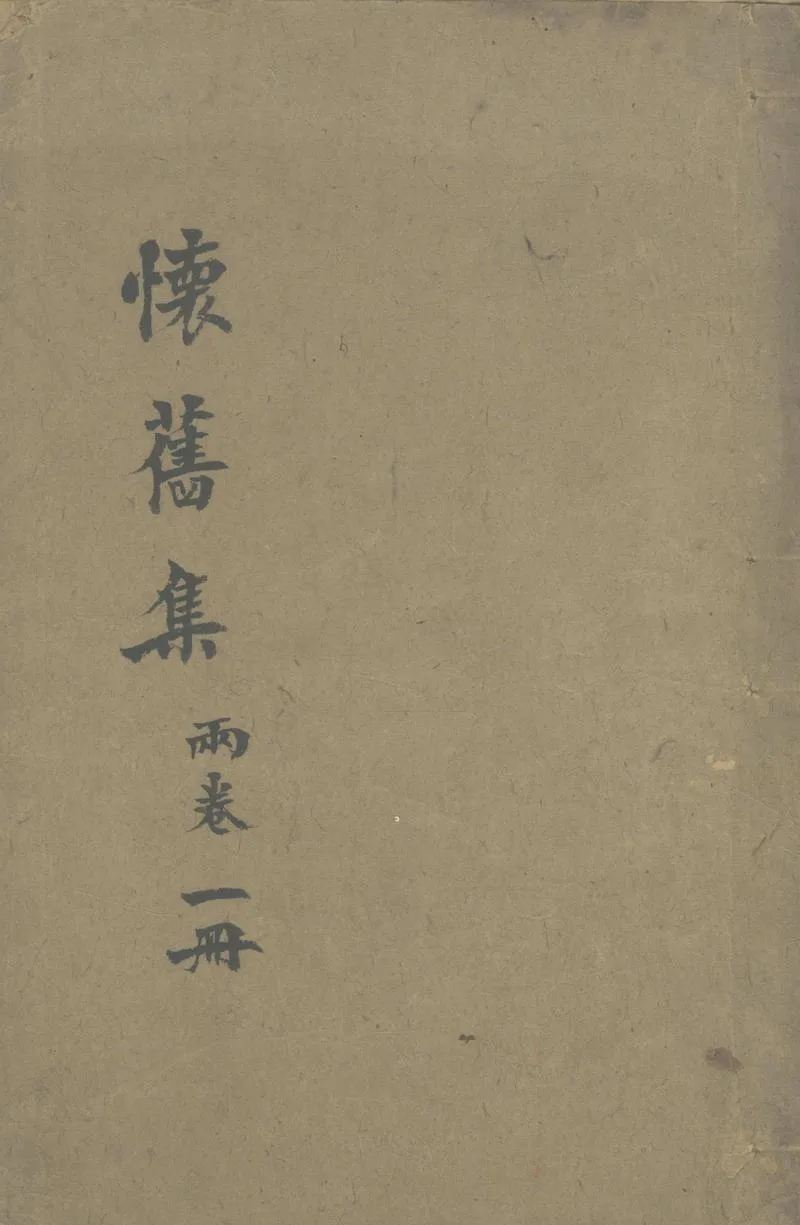 懷舊集 兩卷 一冊